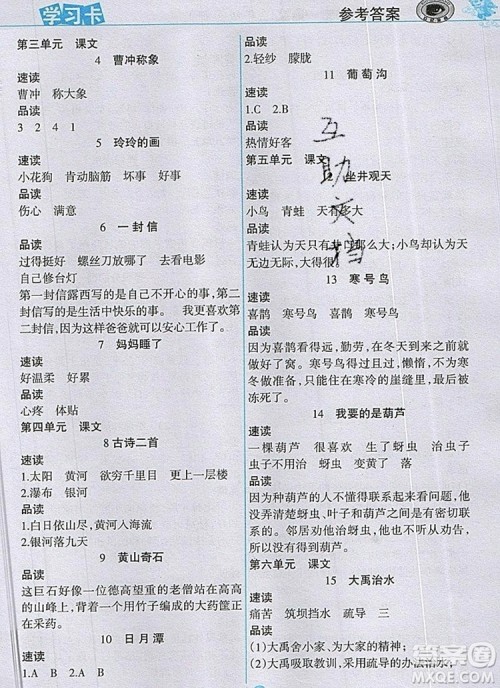 学习卡
参考答案
第三单元 课文
4 曹冲称象
速读
曹冲 称大象
品读
3 2 4 1
5 玲玲的画
速读
小花狗 肯动脑筋 坏事 好事
品读
伤心 满意
6 一封信
速读
过得挺好 螺丝刀放哪了 去看电影
自己修台灯
第一封信露西写的是自己不开心的事,第二
封信写的是生活中快乐的事。 我更喜欢第
二封信,因为这样爸爸就可以安心工作了。
7 妈妈睡了
速读
好温柔 好累
品读
心疼 体贴
第四单元 课文
8 古诗二首
速读
1.太阳 黄河 欲穷千里目 更上一层楼
2.瀑布 银河
品读
1.白日依山尽,黄河入海流
2.银河落九天
9 黄山奇石
品读
这巨石好像一位德高望重的老僧站在高高
的山峰上,背着一个用竹子编成的大药筐正
在采药。
10 日月潭
速读
1.A B 2.A B
品读
2.轻纱 朦胧
11 葡萄沟
速读
1.C 2.B
品读
热情好客
第五单元 课文
12 坐井观天
速读
小鸟 青蛙 天有多大
品读
青蛙认为天只有井口那么大;小鸟却认为天
无边无际,大得很。
13 寒号鸟
速读
喜鹊 寒号鸟 喜鹊
品读
因为喜鹊看得远,勤劳,在冬天到来之前就
做好了准备。寒号鸟得过且过,懒惰,不为寒
冬做准备,只能住在寒冷的崖缝里,最后被
冻死了。
14 我要的是葫芦
速读
一棵葫芦 很喜欢 生了蚜虫 治虫子
是蚜虫 蚜虫 变黄了 落
品读
因为种葫芦的人不懂得联系起来看问题,他
没弄清楚蚜虫、叶子和葫芦之间是有密切联
系的。邻居劝他治蚜虫,他却置之不理,蚜虫
最后毁掉了葫芦。
第六单元 课文
15 大禹治水
速读
痛苦 筑坝挡水 疏导 三
品读
(1)大禹舍小家、为大家的精神;
(2)大禹吸取教训,采用疏导的办法治水。
互助文档
答案圈
MXQE.COM